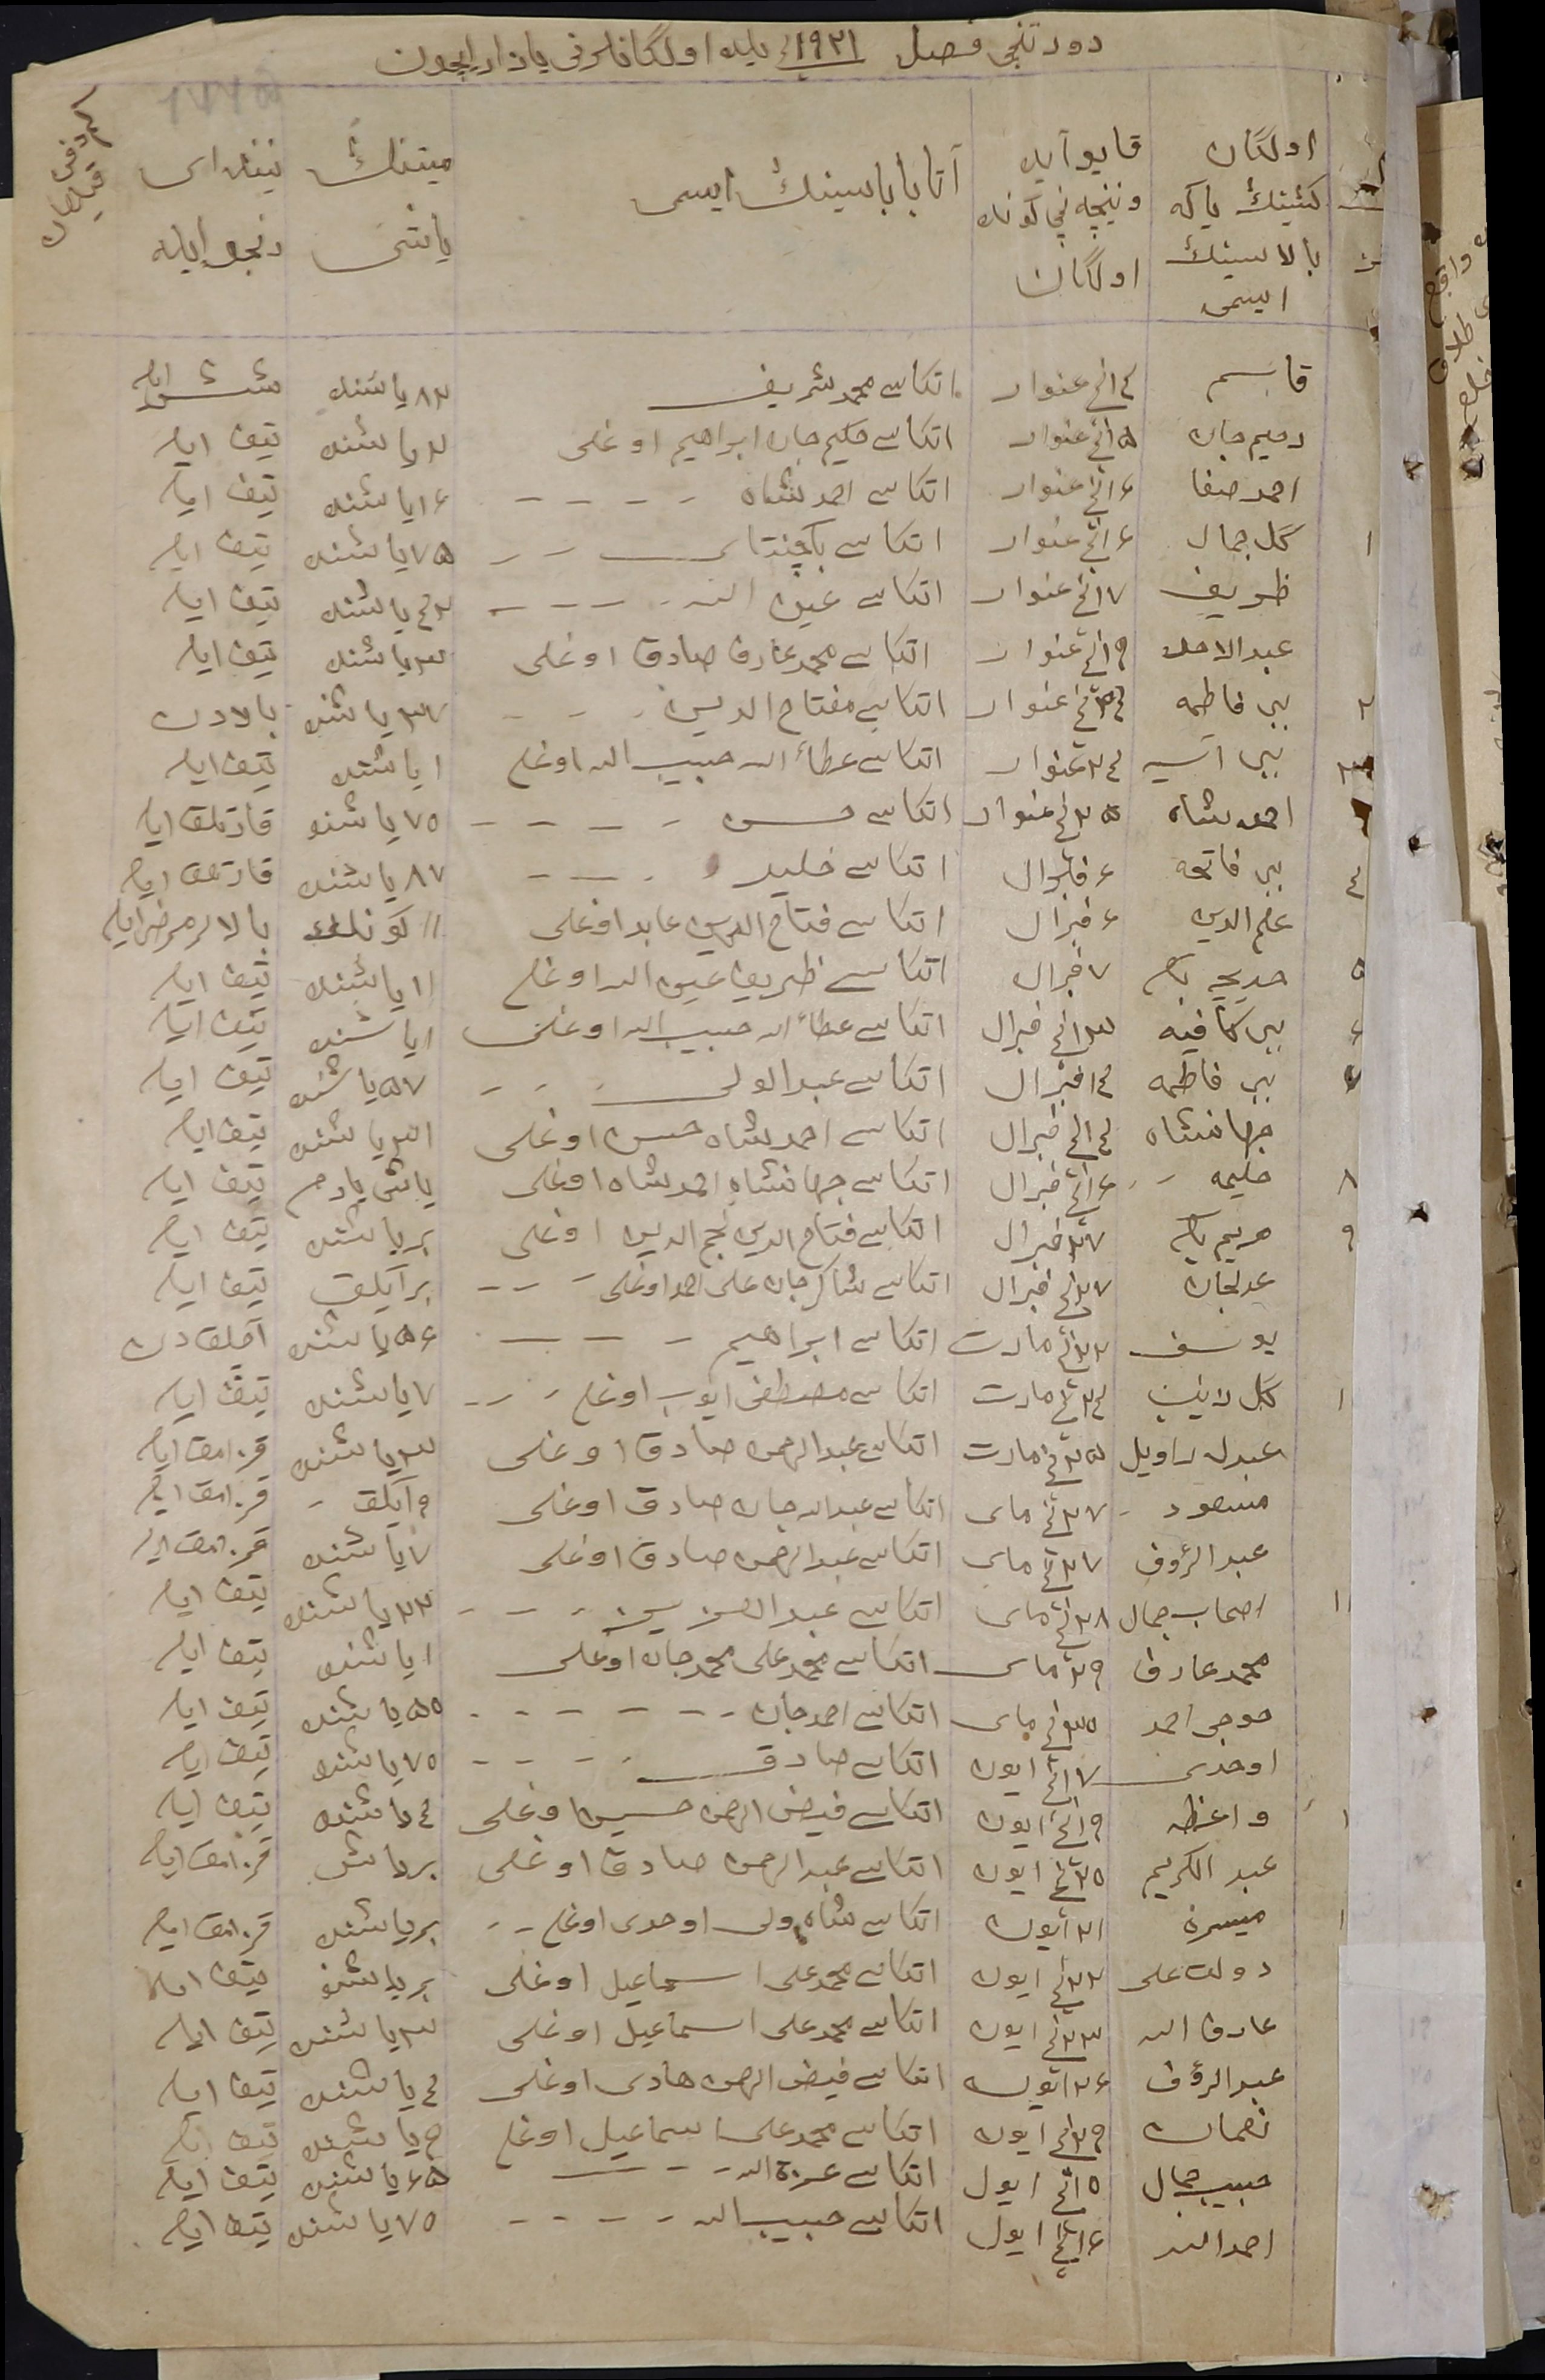 دورتنچی فصل ١٩٢١ نچی یلده اولگانلرنی یازار ایچون
اولگان کشینڭ یاکه بالاسینڭ ایسمی | قایو آیده و نیچه نچی کونده اولگان | آتا باباسینڭ ایسمی | میتنڭ یاشی | نیندای رنجو ایله
قاسم | ١٤نچی غنوار | اتکاسی محمد شریف | ٨٢ یاشنده | ایله
رحیم جان | ١٥نچی غنوار | اتکاسی حکیم جان ابراهیم اوغلی | ٢ یاشنده | تیف ایله
احمد صفا | ١٦نچی غنوار | اتکاسی احمد شاه | ١٦ یاشنده | تیف ایله
١ | گل جمال | ١٦نچی غنوار | اتکاسی | ٧٥ یاشنده | تیف ایله
ظریف | ١٧نچی غنوار | اتکاسی عین الله | ٤٢ یاشنده | تیف ایله
عبد الاحد | ١٩نچی غنوار | اتکاسی محمد عارف صادق اوغلی | ٣ یاشنده | تیف ایله
٢ | بی بی فاطمه | ٢٤نچی غنوار | اتکاسی مفتاح الدین | ٣٧ یاشنده | بالادن
٣ | بی بی آسیه | ٢٤ غنوار | اتکاسی عطاء الله حبیب الله اوغلی | ١ یاشنده | تیف ایله
احمد شاه | ٢٥نچی غنوار | اتکاسی حسن | ٧٥ یاشنده | قارتلق ایله
٤ | بی بی فاتحه | ٦ فبرال | اتکاسی خلید | ٨٧ یاشنده | قارتلق ایله
علم الدین | ٦ فبرال | اتکاسی فتاح الدین عابد اوغلی | ١١ کونلك | بالالر مرضی ایله
٥ | خدیجه بانو | ٧ فبرال | اتکاسی ظریف عین الله اوغلی | ١١ یاشنده | تیف ایله
٦ | بی بی کافیه | ١٣نچی فبرال | اتکاسی عطاء الله حبیب الله اوغلی | ١ یاشنده | تیف ایله
٧ | بی بی فاطمه | ١٤ فبرال | اتکاسی عبد الولی | ٥٧ یاشنده | تیف ایله
جهانشاه | ١٤نچی فبرال | اتکاسی احمد شاه حسن اوغلی | ٣١ یاشنده | تیف ایله
٨ | حلیمه | ١٦نچی فبرال | اتکاسی جهانشاه احمد شاه اوغلی | یاشی یارم | تیف ایله
٩ | مریم بانو | ٢٧ فبرال | اتکاسی فتاح الدین نجم الدین اوغلی | بر یاشنده | تیف ایله
عدلجان | ٢٧نچی فبرال | اتکاسی شاکر جان علی احمد اوغلی | بر آیلق | تیف ایله
یوسف | ٢٢نچی مارت | اتکاسی ابراهیم | ٥٦ یاشنده | آچلقدن
١ | گل زینب | ٢٤نچی مارت | اتکاسی مصطفی ایوب اوغلی | ٧ یاشنده | تیف ایله
عبدل راویل | ٢٥نچی مارت | اتکاسی عبد الرحمن صادق اوغلی | ٣ یاشنده | قزامق ایله
مسعود | ٢٧نچی مای | اتکاسی عبد الله جان صادق اوغلی | ٩ آیلق | قزامق ایله
عبد الرؤف | ٢٧نچی مای | اتکاسی عبد الرحمن صادق اوغلی | ٧ یاشنده | قزامق ایله
١١ | اصحاب جمال | ٢٨نچی مای | اتکاسی عبد العزیز | ٢٣ یاشنده | تیف ایله
محمد عارف | ٢٩ مای | اتکاسی محمد علی محمد جان اوغلی | ١ یاشنده | تیف ایله
خوجی احمد | ٣٥نچی مای | اتکاسی احمد جان | ٥٥ یاشنده | تیف ایله
اوحدی | ١٧نچی ایون | اتکاسی صادق | ٧٥ یاشنده | تیف ایله
١ | واعظه | ١٩نچی ایون | اتکاسی فیض الرحمن حسین اوغلی | ٤ یاشنده | تیف ایله
عبد الکریم | ٢٥نچی ایون | اتکاسی عبد الرحمن صادق اوغلی | بر یاش | قزامق ایله
١ | میسره | ٢١ ایون | اتکاسی شاه ولی اوحدی اوغلی | بر یاشنده | قزامق ایله
دولت علی | ٢٢نچی ایون | اتکاسی محمد علی اسماعیل اوغلی | بر یاشنده | تیف ایله
عارف الله | ٢٣نچی ایون | اتکاسی محمد علی اسماعیل اوغلی | ٣ یاشنده | تیف ایله
عبد الرؤف | ٢٦ ایون | اتکاسی فیض الرحمن هادی اوغلی | ٤ یاشنده | تیف ایله
نعمان | ٢٩نچی ایون | اتکاسی محمد علی اسماعیل اوغلی | ٩ یاشنده | تیف ایله
حبیب جمال | ١٥نچی ایول | اتکاسی عزة الله | ٦٥ یاشنده | تیف ایله
احمد الله | ١٦نچی ایول | اتکاسی حبیب الله | ٧٥ یاشنده | تیف ایله